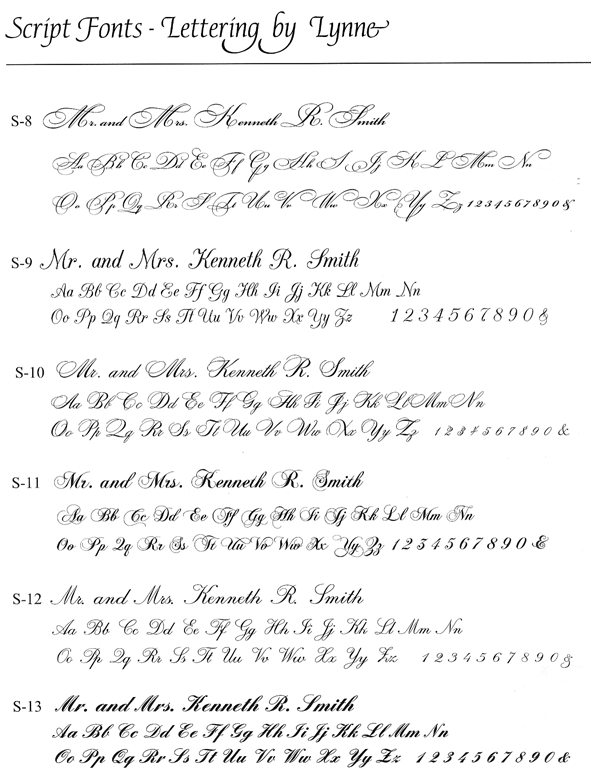 Script Fonts - Lettering by Lynne
S-8 Mr. and Mrs. Kenneth R. Smith
Aa Bb Cc Dd Ee Ff Gg Hh I Jj K L Mm Nn
Oo Pp Qq Rr S Tt Uu Vv Ww Xx Yy Zz 1 2 3 4 5 6 7 8 9 0 &
S-9 Mr. and Mrs. Kenneth R. Smith
Aa Bb Cc Dd Ee Ff Gg Hh Ii Jj Kk Ll Mm Nn
Oo Pp Qq Rr Ss Tt Uu Vv Ww Xx Yy Zz 1 2 3 4 5 6 7 8 9 0 &
S-10 Mr. and Mrs. Kenneth R. Smith
Aa Bb Cc Dd Ee Ff Gg Hh Ii Jj Kk Ll Mm Nn
Oo Pp Qq Rr Ss Tt Uu Vv Ww Xx Yy Zz 1 2 3 4 5 6 7 8 9 0 &
S-11 Mr. and Mrs. Kenneth R. Smith
Aa Bb Cc Dd Ee Ff Gg Hh Ii Jj Kk Ll Mm Nn
Oo Pp Qq Rr Ss Tt Uu Vv Ww Xx Yy Zz 1 2 3 4 5 6 7 8 9 0 &
S-12 Mr. and Mrs. Kenneth R. Smith
Aa Bb Cc Dd Ee Ff Gg Hh Ii Jj Kk Ll Mm Nn
Oo Pp Qq Rr Ss Tt Uu Vv Ww Xx Yy Zz 1 2 3 4 5 6 7 8 9 0 &
S-13 Mr. and Mrs. Kenneth R. Smith
Aa Bb Cc Dd Ee Ff Gg Hh Ii Jj Kk Ll Mm Nn
Oo Pp Qq Rr Ss Tt Uu Vv Ww Xx Yy Zz 1 2 3 4 5 6 7 8 9 0 &